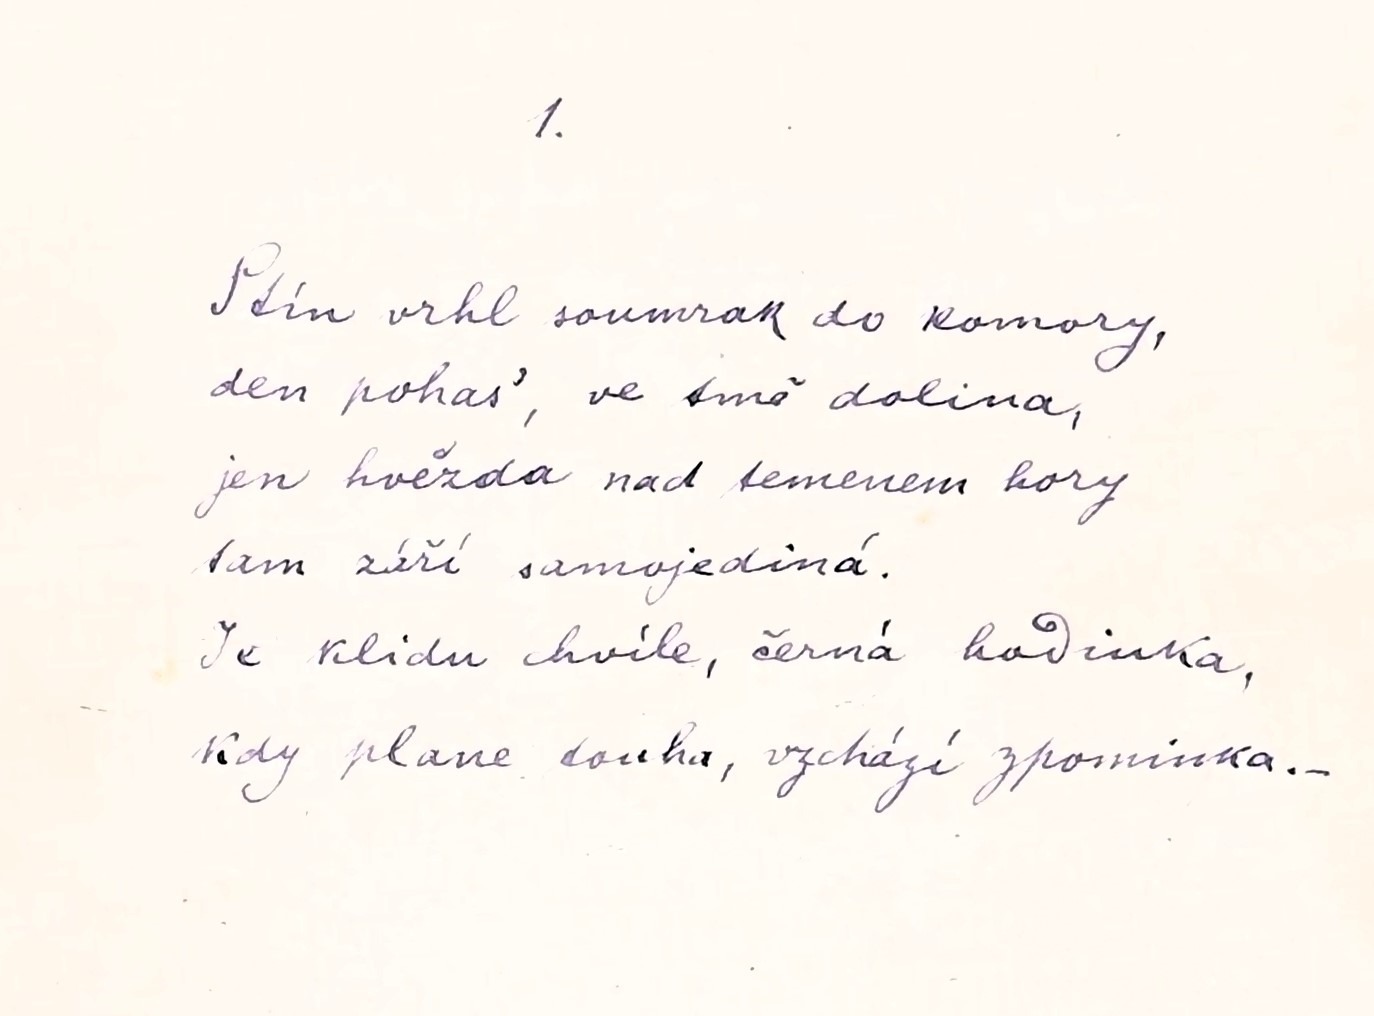 1.
Stín vrhl soumrak do komory,
den pohas', ve tmě dolina,
jen hvězda nad temenem hory
tam září samojediná.
Je klidu chvíle, černá hodinka,
kdy plane touha, vzchází zpomínka.–